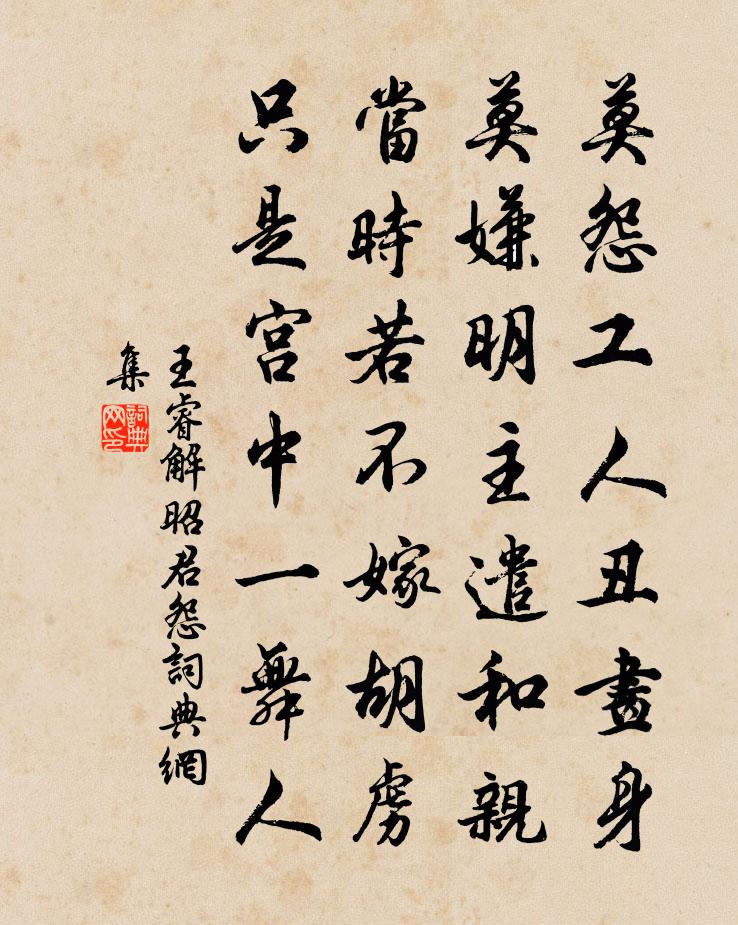 莫怨工人丑畫身
莫嫌明主遣和親
當時若不嫁胡虜
只是宮中一舞人
王睿解昭君怨詞典網
集
詞典
网印